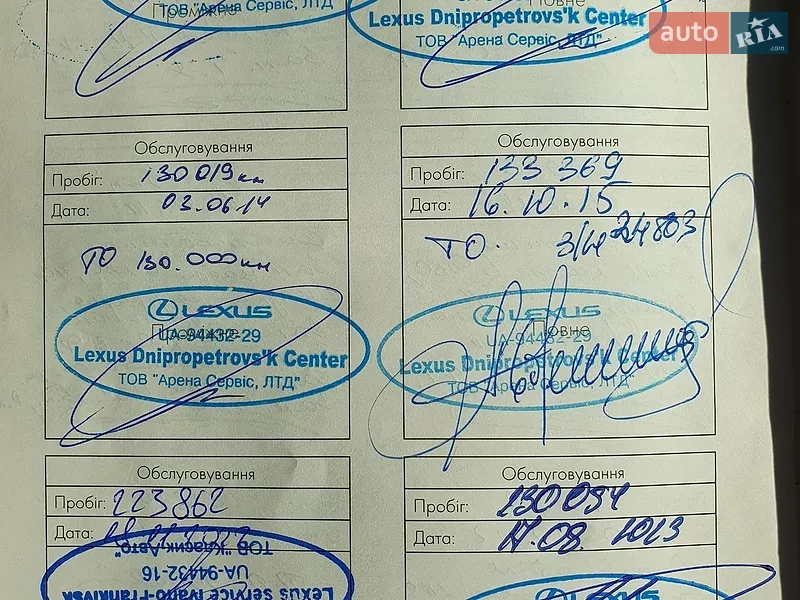 Проміжне
ТОВ "Арена Сервіс, ЛТД"
Повне
Lexus Dnipropetrovs'k Center
ТОВ "Арена Сервіс, ЛТД"
auto RIA .com
Обслуговування
Пробіг: 130 019 км
Дата: 03.06.14
ТО 130.000 км
LEXUS
Проміжне
UA-94432-29
Lexus Dnipropetrovs'k Center
ТОВ "Арена Сервіс, ЛТД"
Обслуговування
Пробіг: 133 369
Дата: 16.10.15
ТО. З/Н 24803
LEXUS
Повне
UA-94432-29
Lexus Dnipropetrovs'k Center
ТОВ "Арена Сервіс, ЛТД"
Обслуговування
Пробіг: 223862
Дата:
ТОВ "Класик Авто"
UA-94432-16
Lexus service Ivano-Frankivsk
Обслуговування
Пробіг: 130 094
Дата: 17.08.